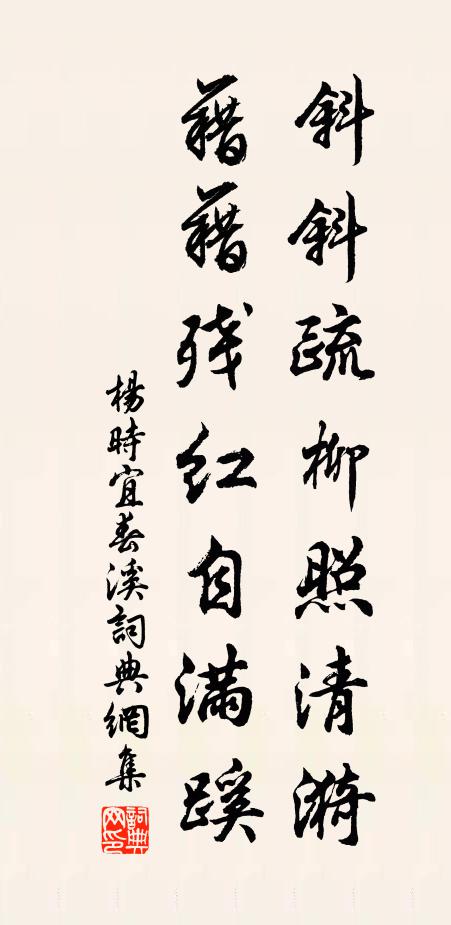 斜斜疏柳照清漪
藉藉残红自满蹊
楊時宜春溪詞典網集
詞典網印